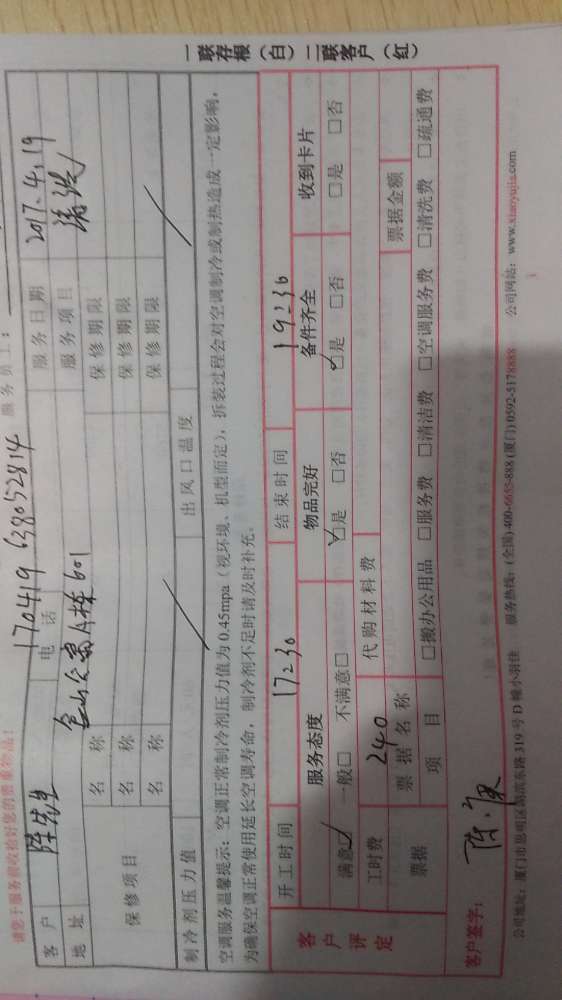 请您于服务前收拾好您的贵重物品!
服务员工:
170419 638052814
客户 陈先生 电话 服务日期 2017.4.19
地址 金山公寓A栋601 服务项目 清洗
保修项目 名称 保修期限
名称 保修期限
名称 保修期限
制冷剂压力值 出风口温度
空调服务温馨提示:空调正常制冷剂压力值为0.45mpa(视环境、机型而定),拆装过程会对空调制冷或制热造成一定影响,
为确保空调正常使用延长空调寿命,制冷剂不足时请及时补充。
客户评定
开工时间 17:30 结束时间 19:30
服务态度 物品完好 备件齐全 收到卡片
满意☑ 一般□ 不满意□ ☑是 □否 ☑是 □否 □是 □否
工时费 240 代购材料费
票据 票据名称 票据金额
项目 □搬办公用品 □服务费 □清洁费 □空调服务费 □清洗费 □疏通费
客户签字:陈
公司地址:厦门市思明区湖滨东路319号D幢小羽佳 服务热线:(全国)400-6655-888 (厦门)0592-5178888 公司网站:www.xiaoyujia.com
一联存根(白)二联客户(红)